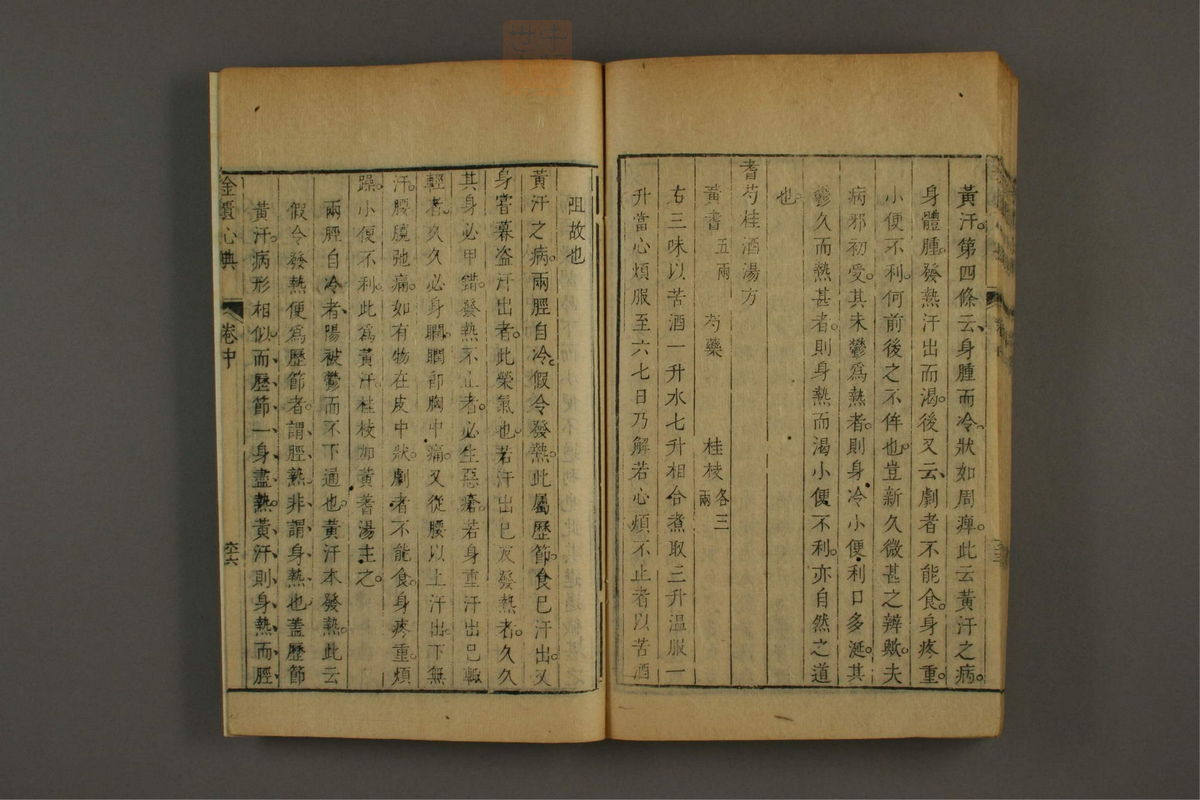 黃汗。第四條云、身腫而冷、狀如周痺。此云黃汗之病。
身體腫。發熱汗出而渴。後又云、劇者不能食。身疼重。
小便不利。何前後之不侔也。豈新久微甚之辨歟。夫
病邪初受。其未鬱爲熱者。則身冷小便利口多涎。其
鬱久而熱甚者。則身熱而渴小便不利。亦自然之道
也。
耆芍桂酒湯方
黃耆五兩 芍藥 桂枝各三兩
右三味以苦酒一升水七升相合煮取三升温服一
升當心煩服至六七日乃解若心煩不止者以苦酒
阻故也
黃汗之病。兩脛自冷。假令發熱。此屬歷節。食已汗出。又
身嘗暮盗汗出者。此榮氣也。若汗出已反發熱者。久久
其身必甲錯。發熱不止者。必生惡瘡。若身重汗出已輒
輕者。久久必身瞤。瞤卽胸中痛。又從腰以上汗出。下無
汗。腰髖弛痛。如有物在皮中狀。劇者不能食。身疼重。煩
躁。小便不利。此爲黃汗。桂枝加黃蓍湯主之。
兩脛自冷者、陽被鬱而不下通也。黃汗本發熱。此云
假令發熱便爲歷節者。謂脛熱、非謂身熱也。蓋歷節
黃汗、病形相似。而歷節一身盡熱。黃汗則身熱而脛
金匱心典
卷中
六六